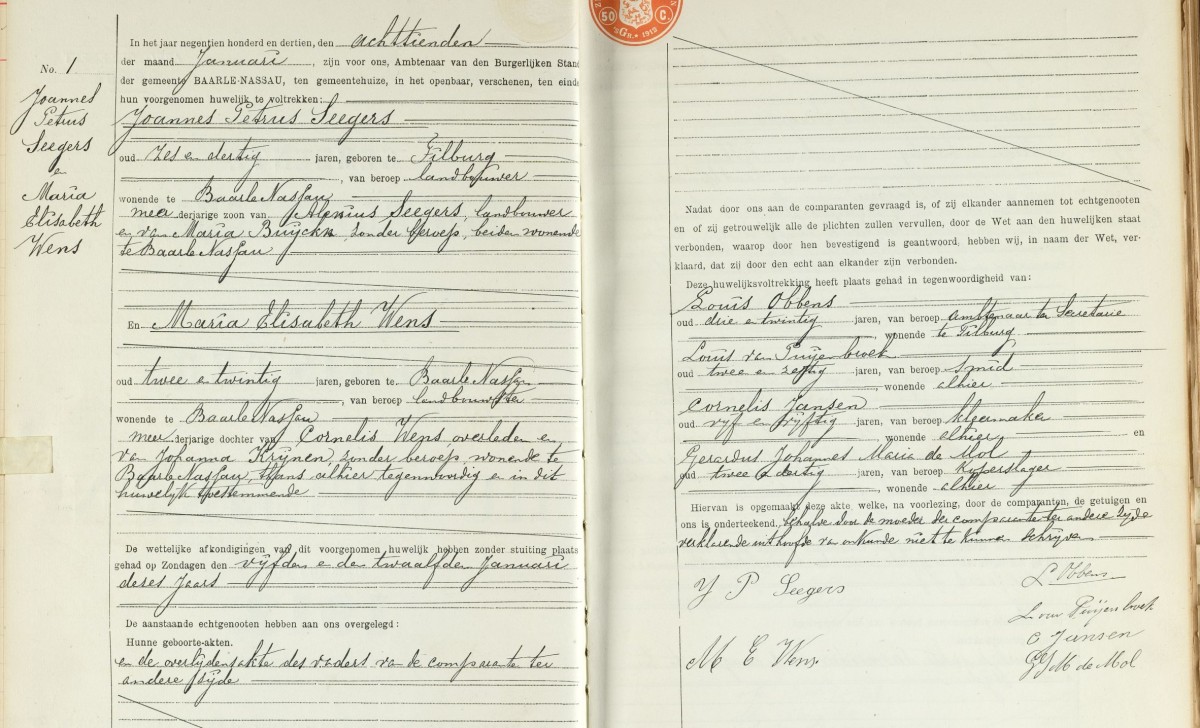 No. 1
Joannes
Petrus
Seegers
e
Maria
Elisabeth
Wens
In het jaar negentien honderd en dertien, den achttienden
der maand Januari, zijn voor ons, Ambtenaar van den Burgerlijken Stand
der gemeente BAARLE-NASSAU, ten gemeentehuize, in het openbaar, verschenen, ten einde
hun voorgenomen huwelijk te voltrekken:
Joannes Petrus Seegers
oud zes en dertig jaren, geboren te Tilburg
, van beroep landbouwer
wonende te Baarle Nassau
meerderjarige zoon van Alexius Seegers, landbouwer
en van Maria Buijckx, zonder beroep, beiden wonende
te Baarle Nassau
En Maria Elisabeth Wens
oud twee en twintig jaren, geboren te Baarle Nassau
, van beroep landbouwster
wonende te Baarle Nassau
meerderjarige dochter van Cornelis Wens overleden en
van Johanna Krijnen, zonder beroep, wonende te
Baarle Nassau, thans alhier tegenwoordig en in dit
huwelijk toestemmende
De wettelijke afkondigingen van dit voorgenomen huwelijk hebben zonder stuiting plaats
gehad op Zondagen den vijfden en den twaalfden Januari
dezes jaars
De aanstaande echtgenooten hebben aan ons overgelegd:
Hunne geboorte-akten.
en de overlijdensakte des vaders van de comparante ter
andere zijde
50 C.
Gr. 1913
Nadat door ons aan de comparanten gevraagd is, of zij elkander aannemen tot echtgenooten
en of zij getrouwelijk alle de plichten zullen vervullen, door de Wet aan den huwelijken staat
verbonden, waarop door hen bevestigend is geantwoord, hebben wij, in naam der Wet, ver-
klaard, dat zij door den echt aan elkander zijn verbonden.
Deze huwelijksvoltrekking heeft plaats gehad in tegenwoordigheid van:
Louis Obbens
oud drie en twintig jaren, van beroep Ambtenaar ter Secretarie
, wonende te Tilburg
Louis van Puijenbroek
oud twee en zestig jaren, van beroep Smid
, wonende alhier
Cornelis Jansen
oud vijf en vijftig jaren, van beroep kleermaker
, wonende alhier en
Gerardus Johannes Maria de Mol
oud twee en dertig jaren, van beroep koperslager
, wonende alhier
Hiervan is opgemaakt deze akte welke, na voorlezing, door de comparanten, de getuigen en
ons is onderteekend, behalve door de moeder der comparante ter andere zijde
verklarende uit hoofde van onkunde niet te kunnen schrijven
J P Seegers
L. Obbens
L van Puijenbroek
C Jansen
M E Wens
GJM de Mol